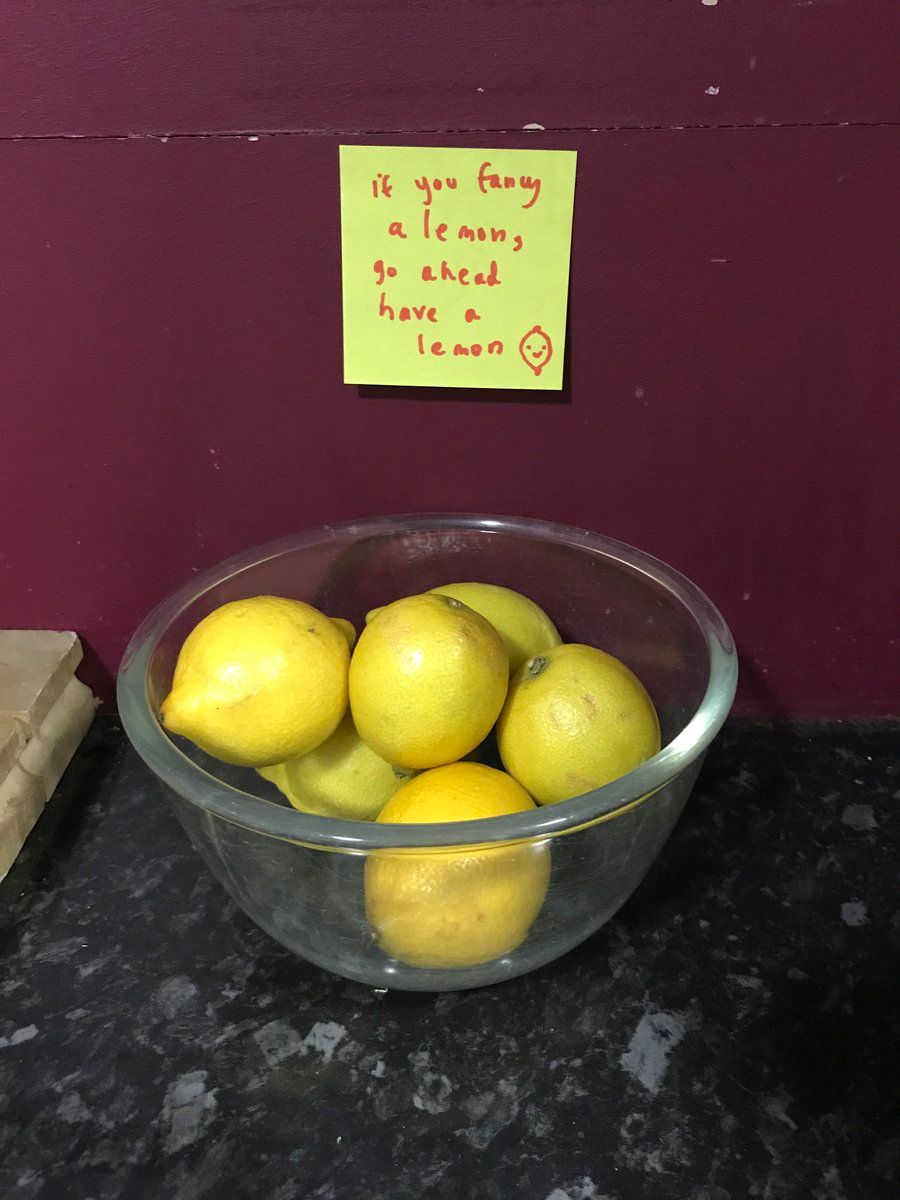 if you fancy
a lemon,
go ahead
have a
lemon